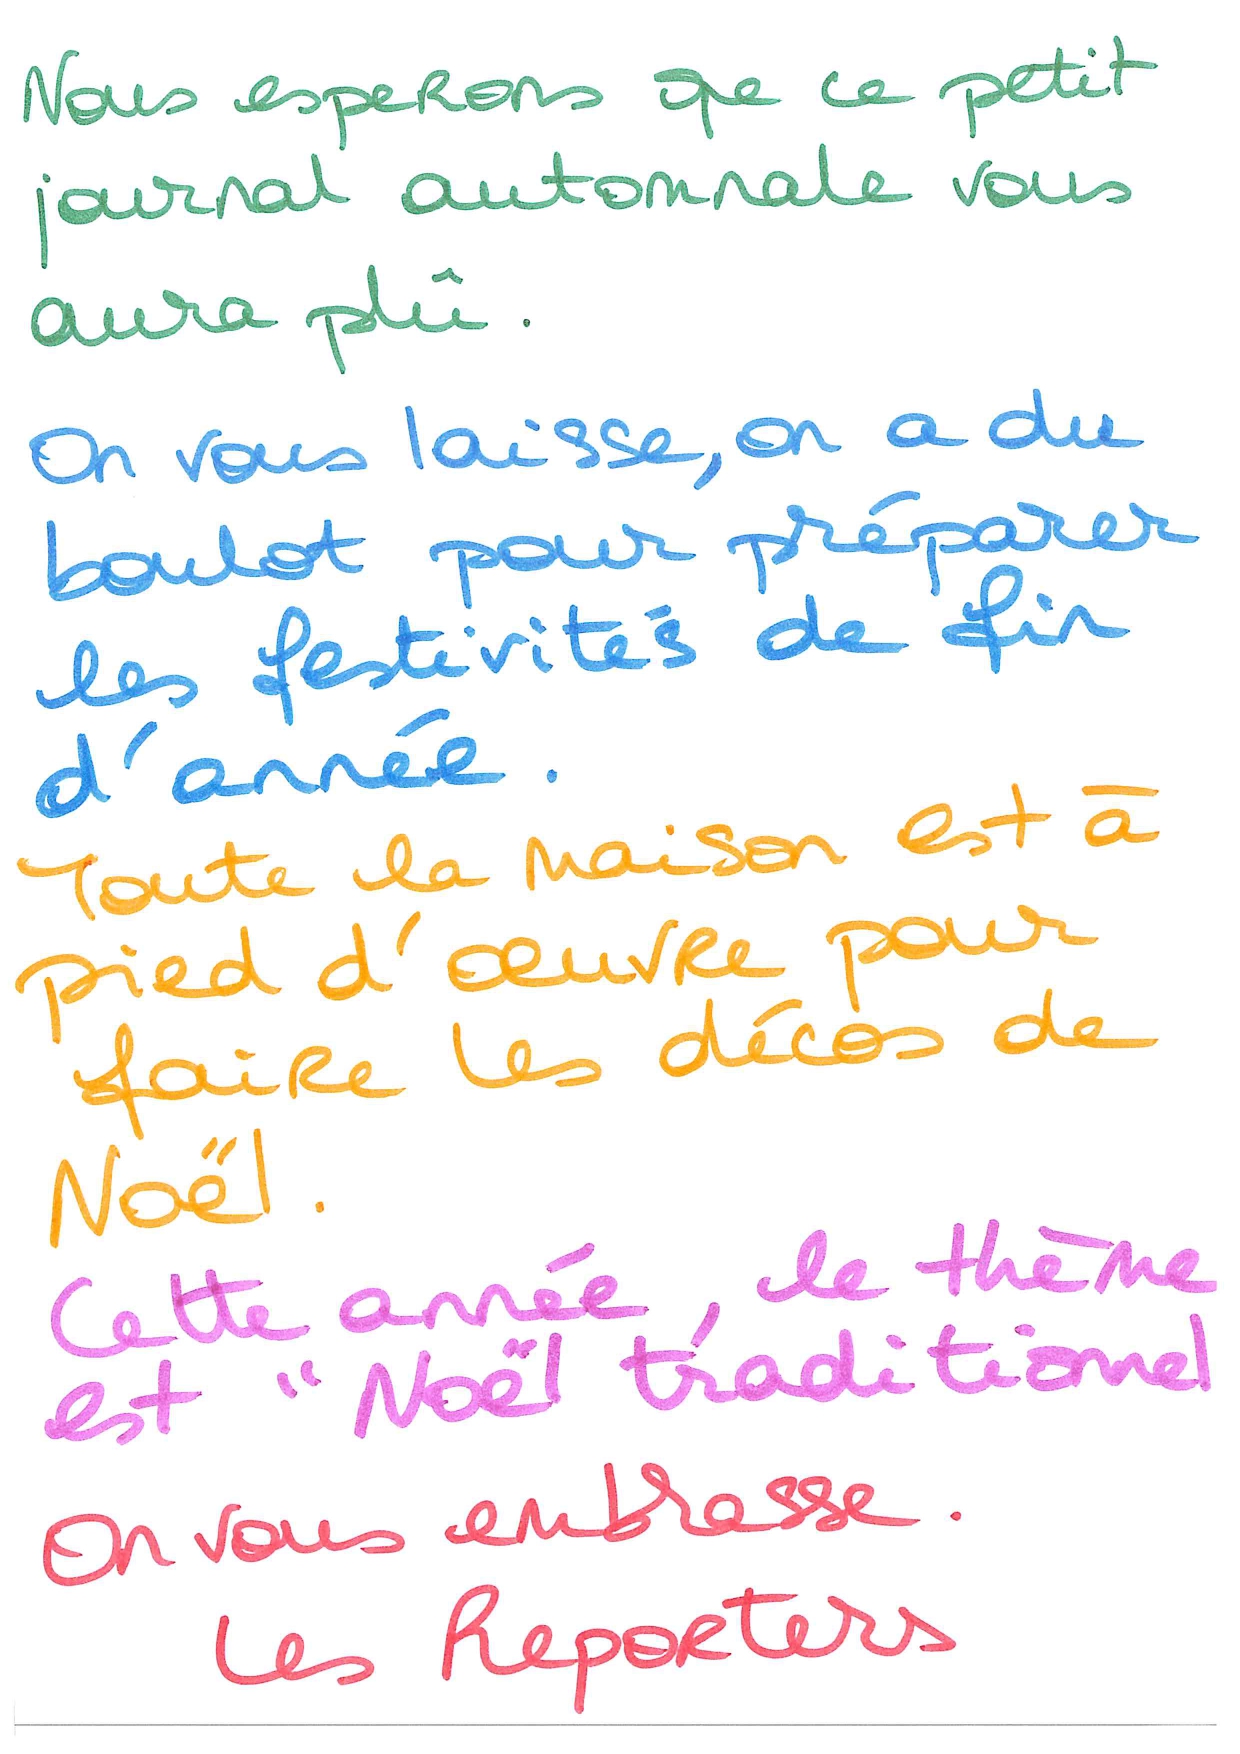 Nous esperons que ce petit
journal automnale vous
aura plû.
On vous laisse, on a du
boulot pour préparer
les festivités de fin
d'année.
Toute la maison est à
pied d'œuvre pour
faire les décos de
Noël.
Cette année, le thème
est "Noël traditionnel
On vous embrasse.
Les Reporters